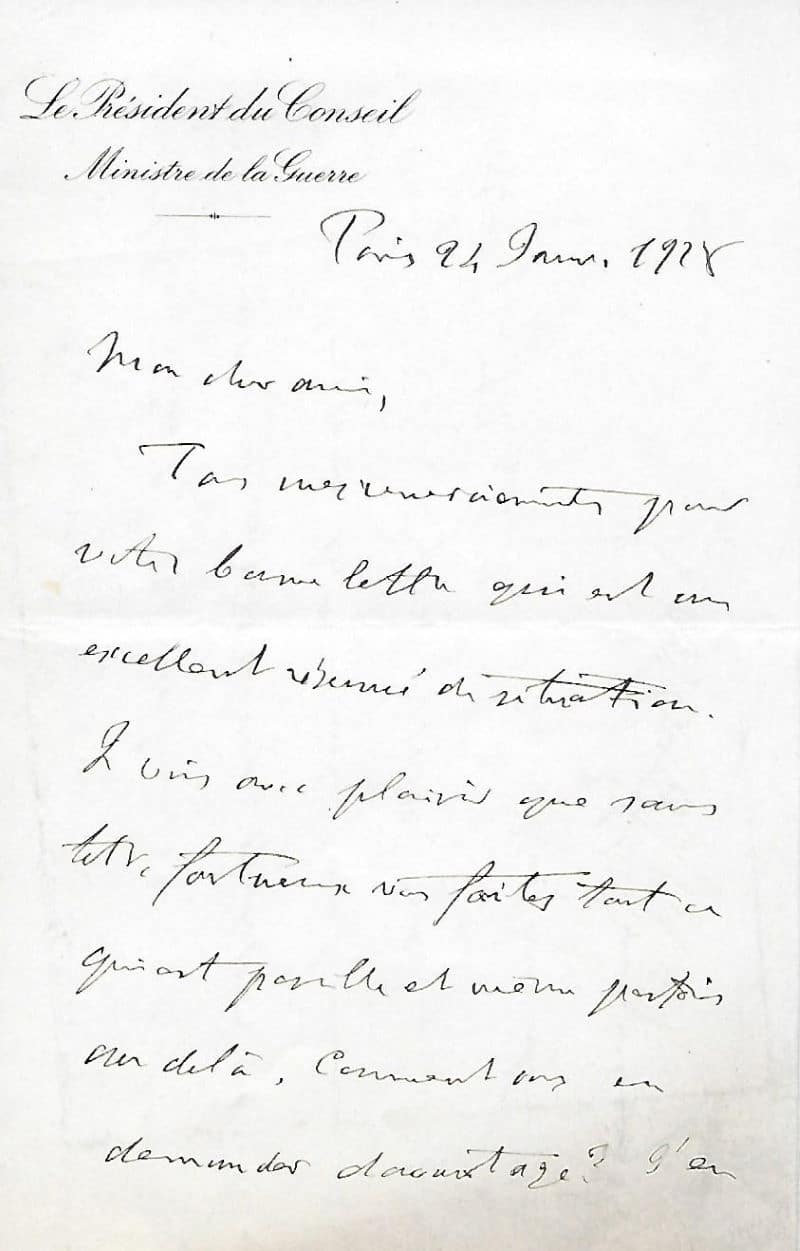 Le Président du Conseil
Ministre de la Guerre
Paris 24 Janv. 1918
Mon cher ami,
Tous mes remerciements pour
votre bonne lettre qui est un
excellent résumé de situation.
Je vois avec plaisir que sans
être vous faites tout ce
qui est possible et même parfois
au delà. Comment vous en
demander davantage? J'en